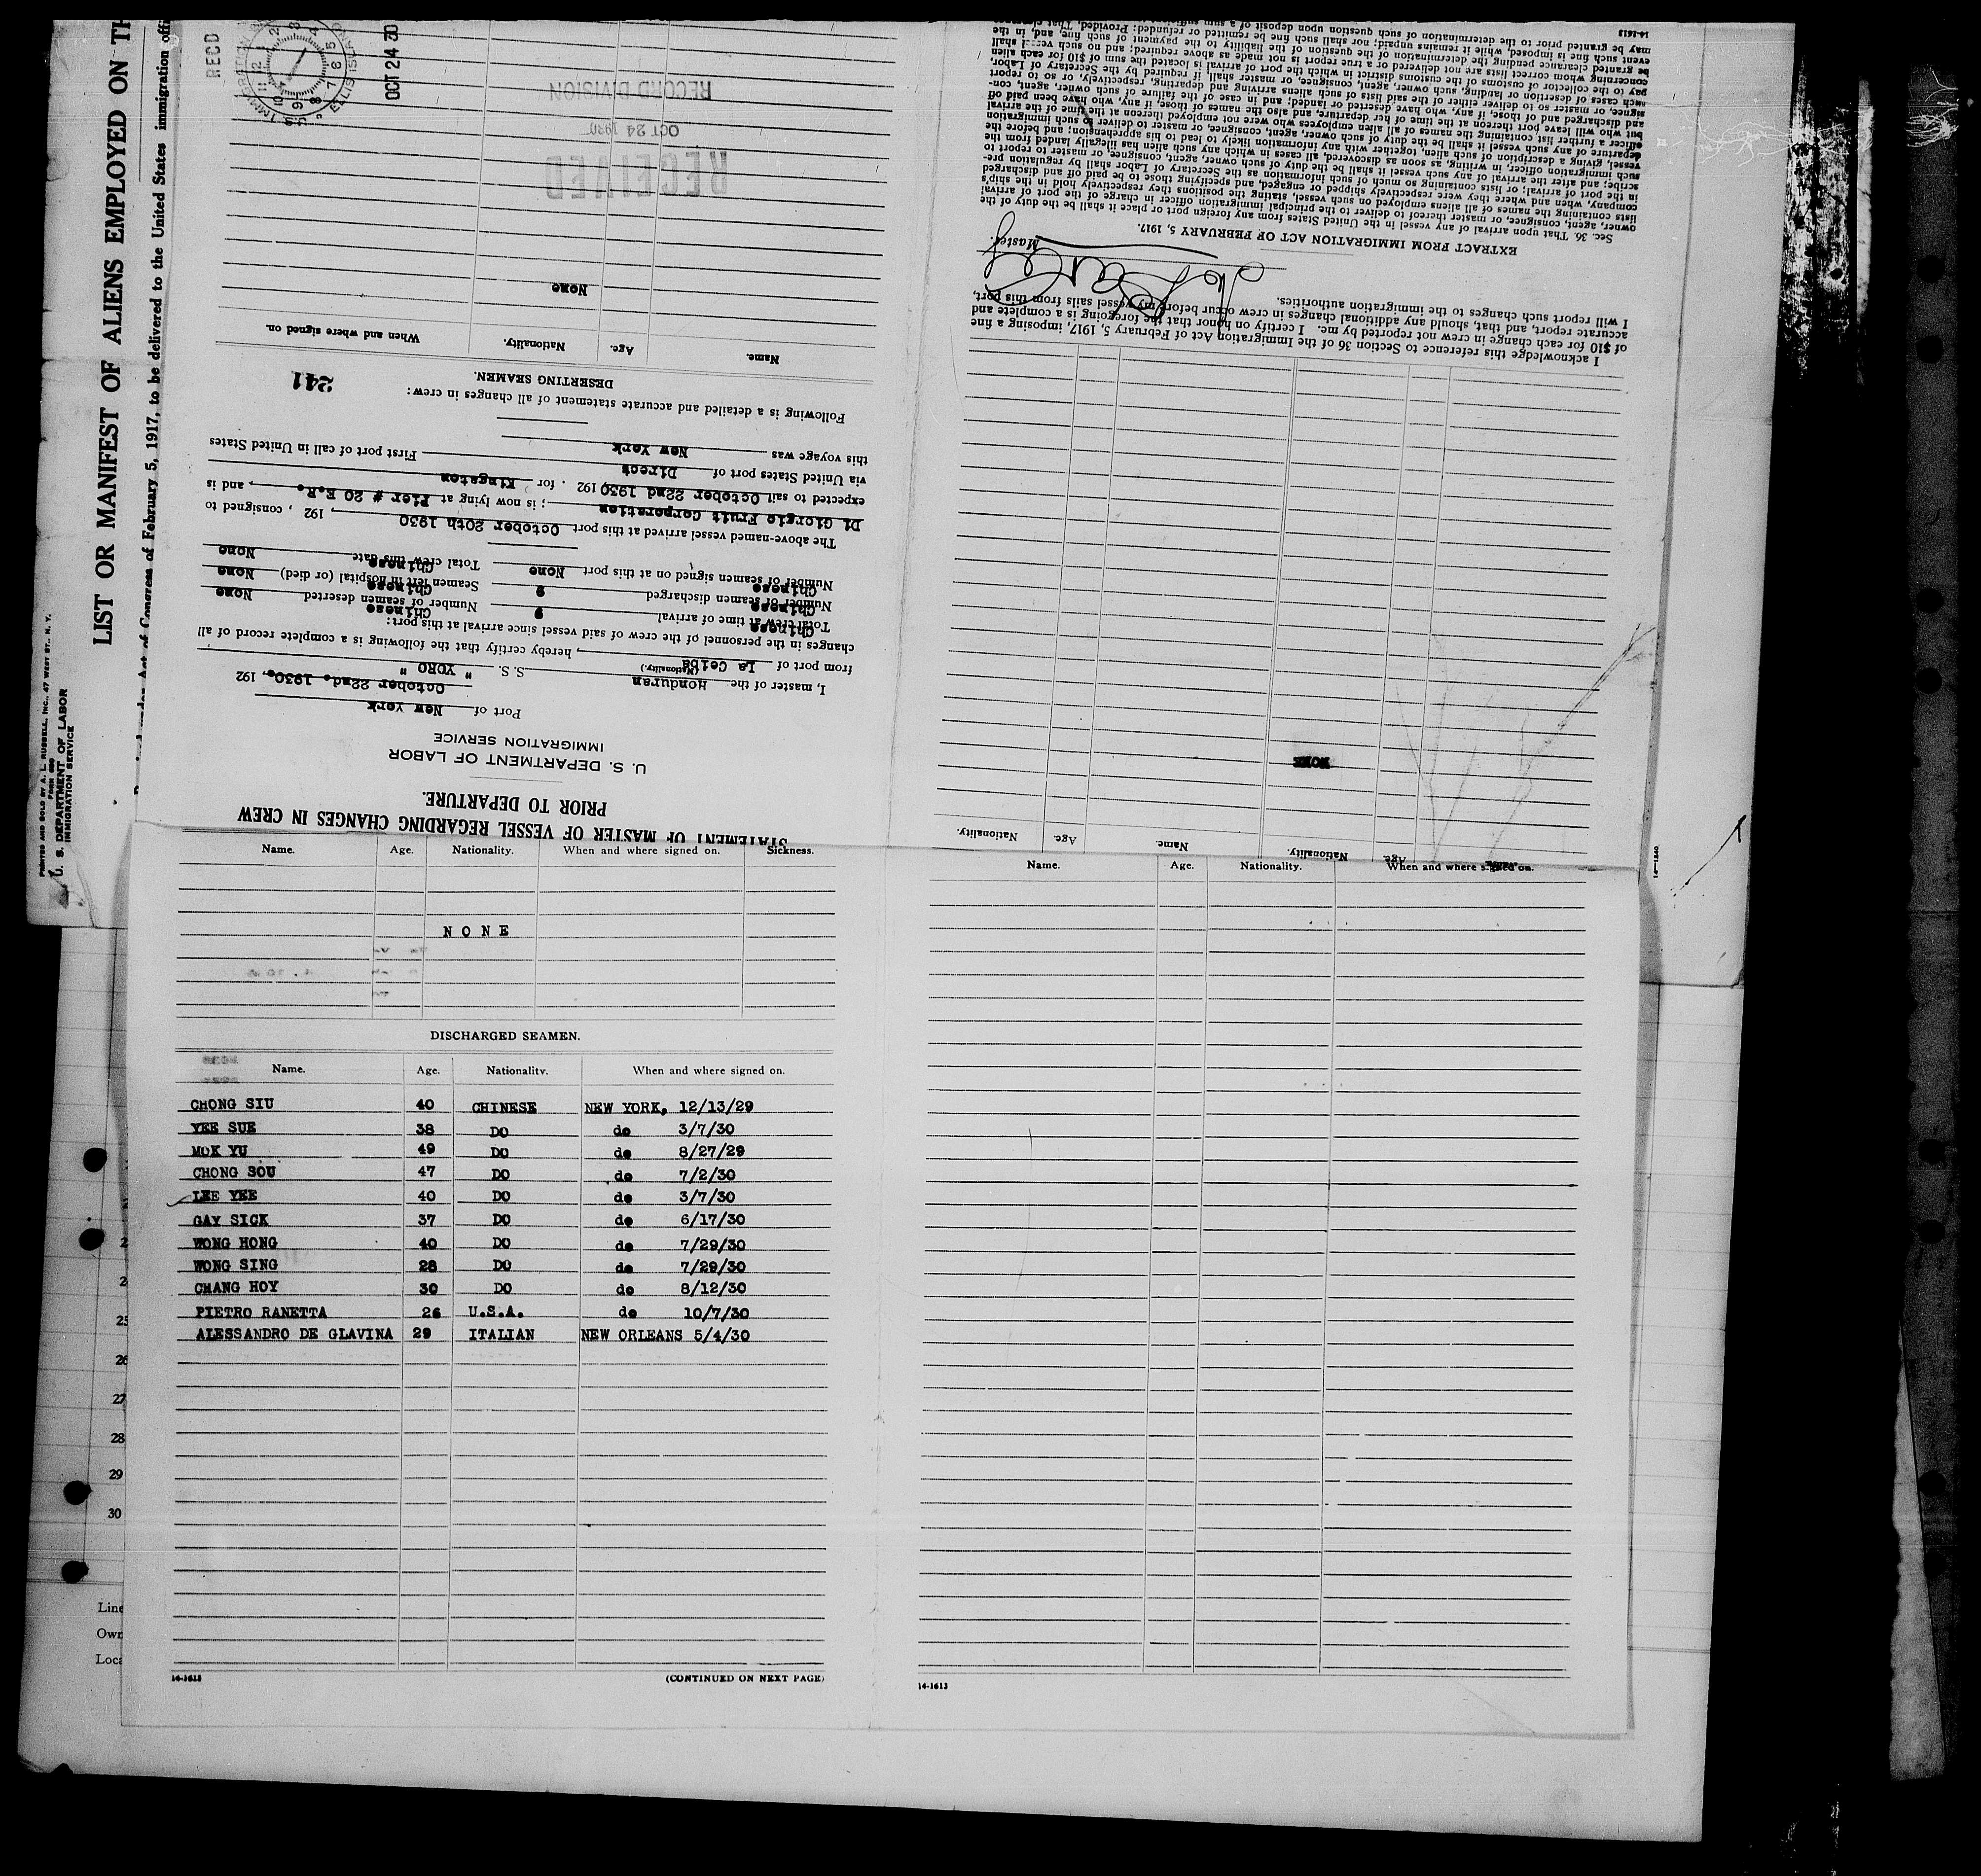 PRINTED AND SOLD BY A. L. RUSSELL, INC., 47 WEST ST., N. Y.
FORM 680
U. S. DEPARTMENT OF LABOR
IMMIGRATION SERVICE
LIST OR MANIFEST OF ALIENS EMPLOYED ON TH
Act of Congress of February 5, 1917, to be delivered to the United States immigration offi
RECD
OCT 24 30
U.S. IMMIGRATION
ELLIS ISLAND
STATEMENT OF MASTER OF VESSEL REGARDING CHANGES IN CREW
PRIOR TO DEPARTURE.
U. S. DEPARTMENT OF LABOR
IMMIGRATION SERVICE
Port of New York
October 22nd. 1930., 192
I, master of the Honduran S. S. " YORO "
(Nationality.)
from port of La Ceiba, hereby certify that the following is a complete record of all
changes in the personnel of the crew of said vessel since arrival at this port:
Chinese Chinese
Total crew at time of arrival 9 Number of seamen deserted None
Chinese Chinese
Number of seamen discharged 9 Seamen left in hospital (or died) None
Chinese Chinese
Number of seamen signed on at this port None Total crew this date None
The above-named vessel arrived at this port October 20th 1930, 192 , consigned to
Di Giorgio Fruit Corporation; is now lying at Pier # 20 E.R., and is
expected to sail October 22nd 1930, 192 . for Kingston
via United States port of Direct First port of call in United States
this voyage was New York
Following is a detailed and accurate statement of all changes in crew:
DESERTING SEAMEN.
241
Name. Age. Nationality. When and where signed on.
None
RECEIVED
OCT 24 1930
RECORD DIVISION
Name. Age. Nationality. Name. Age. Nationality.
NONE
I acknowledge this reference to Section 36 of the Immigration Act of February 5, 1917, imposing a fine
of $10 for each change in crew not reported by me. I certify on honor that the foregoing is a complete and
accurate report, and that, should any additional changes in crew occur before my vessel sails from this port,
I will report such changes to the immigration authorities.
Master.
EXTRACT FROM IMMIGRATION ACT OF FEBRUARY 5, 1917.
Sec. 36. That upon arrival of any vessel in the United States from any foreign port or place it shall be the duty of the
owner, agent, consignee, or master thereof to deliver to the principal immigration officer in charge of the port of arrival
lists containing the names of all aliens employed on such vessel, stating the positions they respectively hold in the ship's
company, when and where they were respectively shipped or engaged, and specifying those to be paid off and discharged
in the port of arrival; or lists containing so much of such information as the Secretary of Labor shall by regulation pre-
scribe; and after the arrival of any such vessel it shall be the duty of such owner, agent, consignee, or master to report to
such immigration officer, in writing, as soon as discovered, all cases in which any such alien has illegally landed from the
vessel, giving a description of such alien, together with any information likely to lead to his apprehension; and before the
departure of any such vessel it shall be the duty of such owner, agent, consignee, or master to deliver to such immigration
officer a further list containing the names of all alien employees who were not employed thereon at the time of the arrival
but who will leave port thereon at the time of her departure, and also the names of those, if any, who have been paid off
and discharged and of those, if any, who have deserted or landed; and in case of the failure of such owner, agent, con-
signee, or master so to deliver either of the said lists of such aliens arriving and departing, respectively, or so to report
such cases of desertion or landing, such owner, agent, consignee, or master shall if required by the Secretary of Labor,
pay to the collector of customs of the customs district in which the port of arrival is located the sum of $10 for each alien
concerning whom correct lists are not delivered or a true report is not made as above required; and no such vessel shall
be granted clearance pending the determination of the question of the liability to the payment of such fine, and, in the
event such fine is imposed, while it remains unpaid; nor shall such fine be remitted or refunded: Provided, That clearance
may be granted prior to the determination of such question upon deposit of a sum sufficient
14-1613
Name. Age. Nationality. When and where signed on. Sickness.
NONE
DISCHARGED SEAMEN.
Name. Age. Nationality. When and where signed on.
CHONG SIU 40 CHINESE NEW YORK, 12/13/29
YEE SUE 38 DO do 3/7/30
MOK YU 49 DO do 8/27/29
CHONG SOU 47 DO do 7/2/30
LEE YEE 40 DO do 3/7/30
GAY SICK 37 DO do 6/17/30
WONG HONG 40 DO do 7/29/30
WONG SING 28 DO do 7/29/30
CHANG HOY 30 DO do 8/12/30
PIETRO RANETTA 26 U.S.A. do 10/7/30
ALESSANDRO DE GLAVINA 29 ITALIAN NEW ORLEANS 5/4/30
14-1613 (CONTINUED ON NEXT PAGE)
Name. Age. Nationality. When and where signed on.
14-1613
14-1240
2
2
25
26
27
28
29
30
Line
Own
Loca